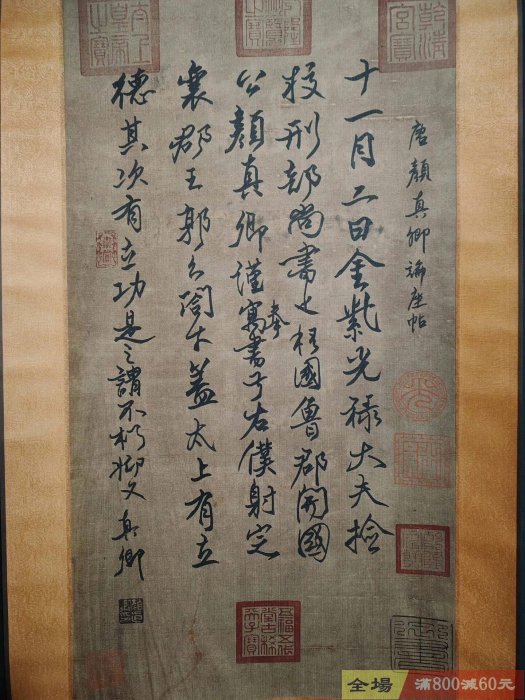 乾清宮寶
太上皇帝之寶
唐顏真卿論座帖
十一月二日金紫光祿大夫撿
挍刑部尚書上柱國魯郡開國
公顏真卿謹奉寓書于右僕射定
襄郡王郭公閤下蓋太上有立
德其次有立功是之謂不朽抑又真卿
全場 滿800減60元